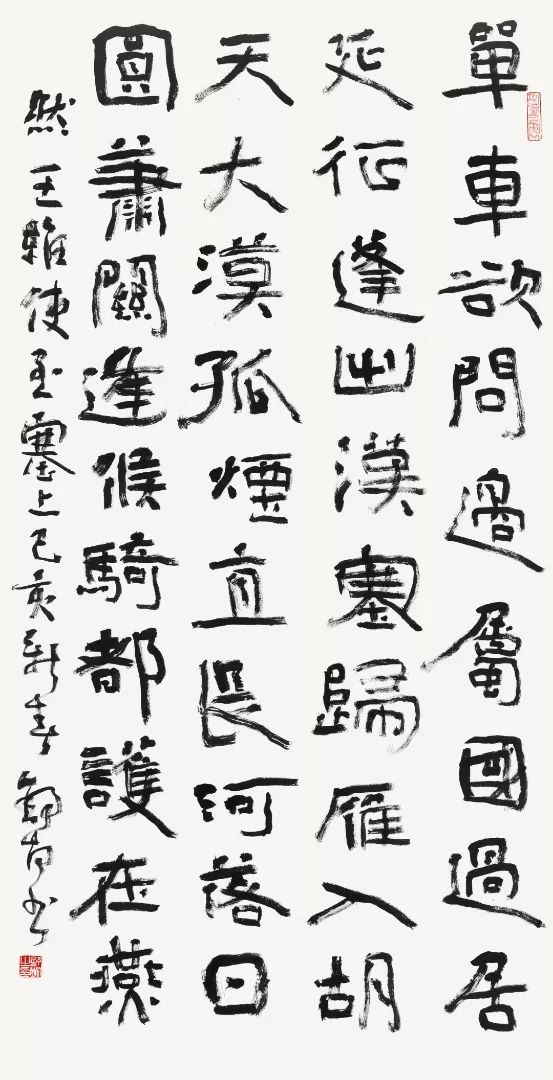 單車欲問邊屬國過居
延征蓬出漢塞歸雁入胡
天大漠孤煙直長河落日
圓蕭關逢候騎都護在燕
然王維使至塞上己亥新春